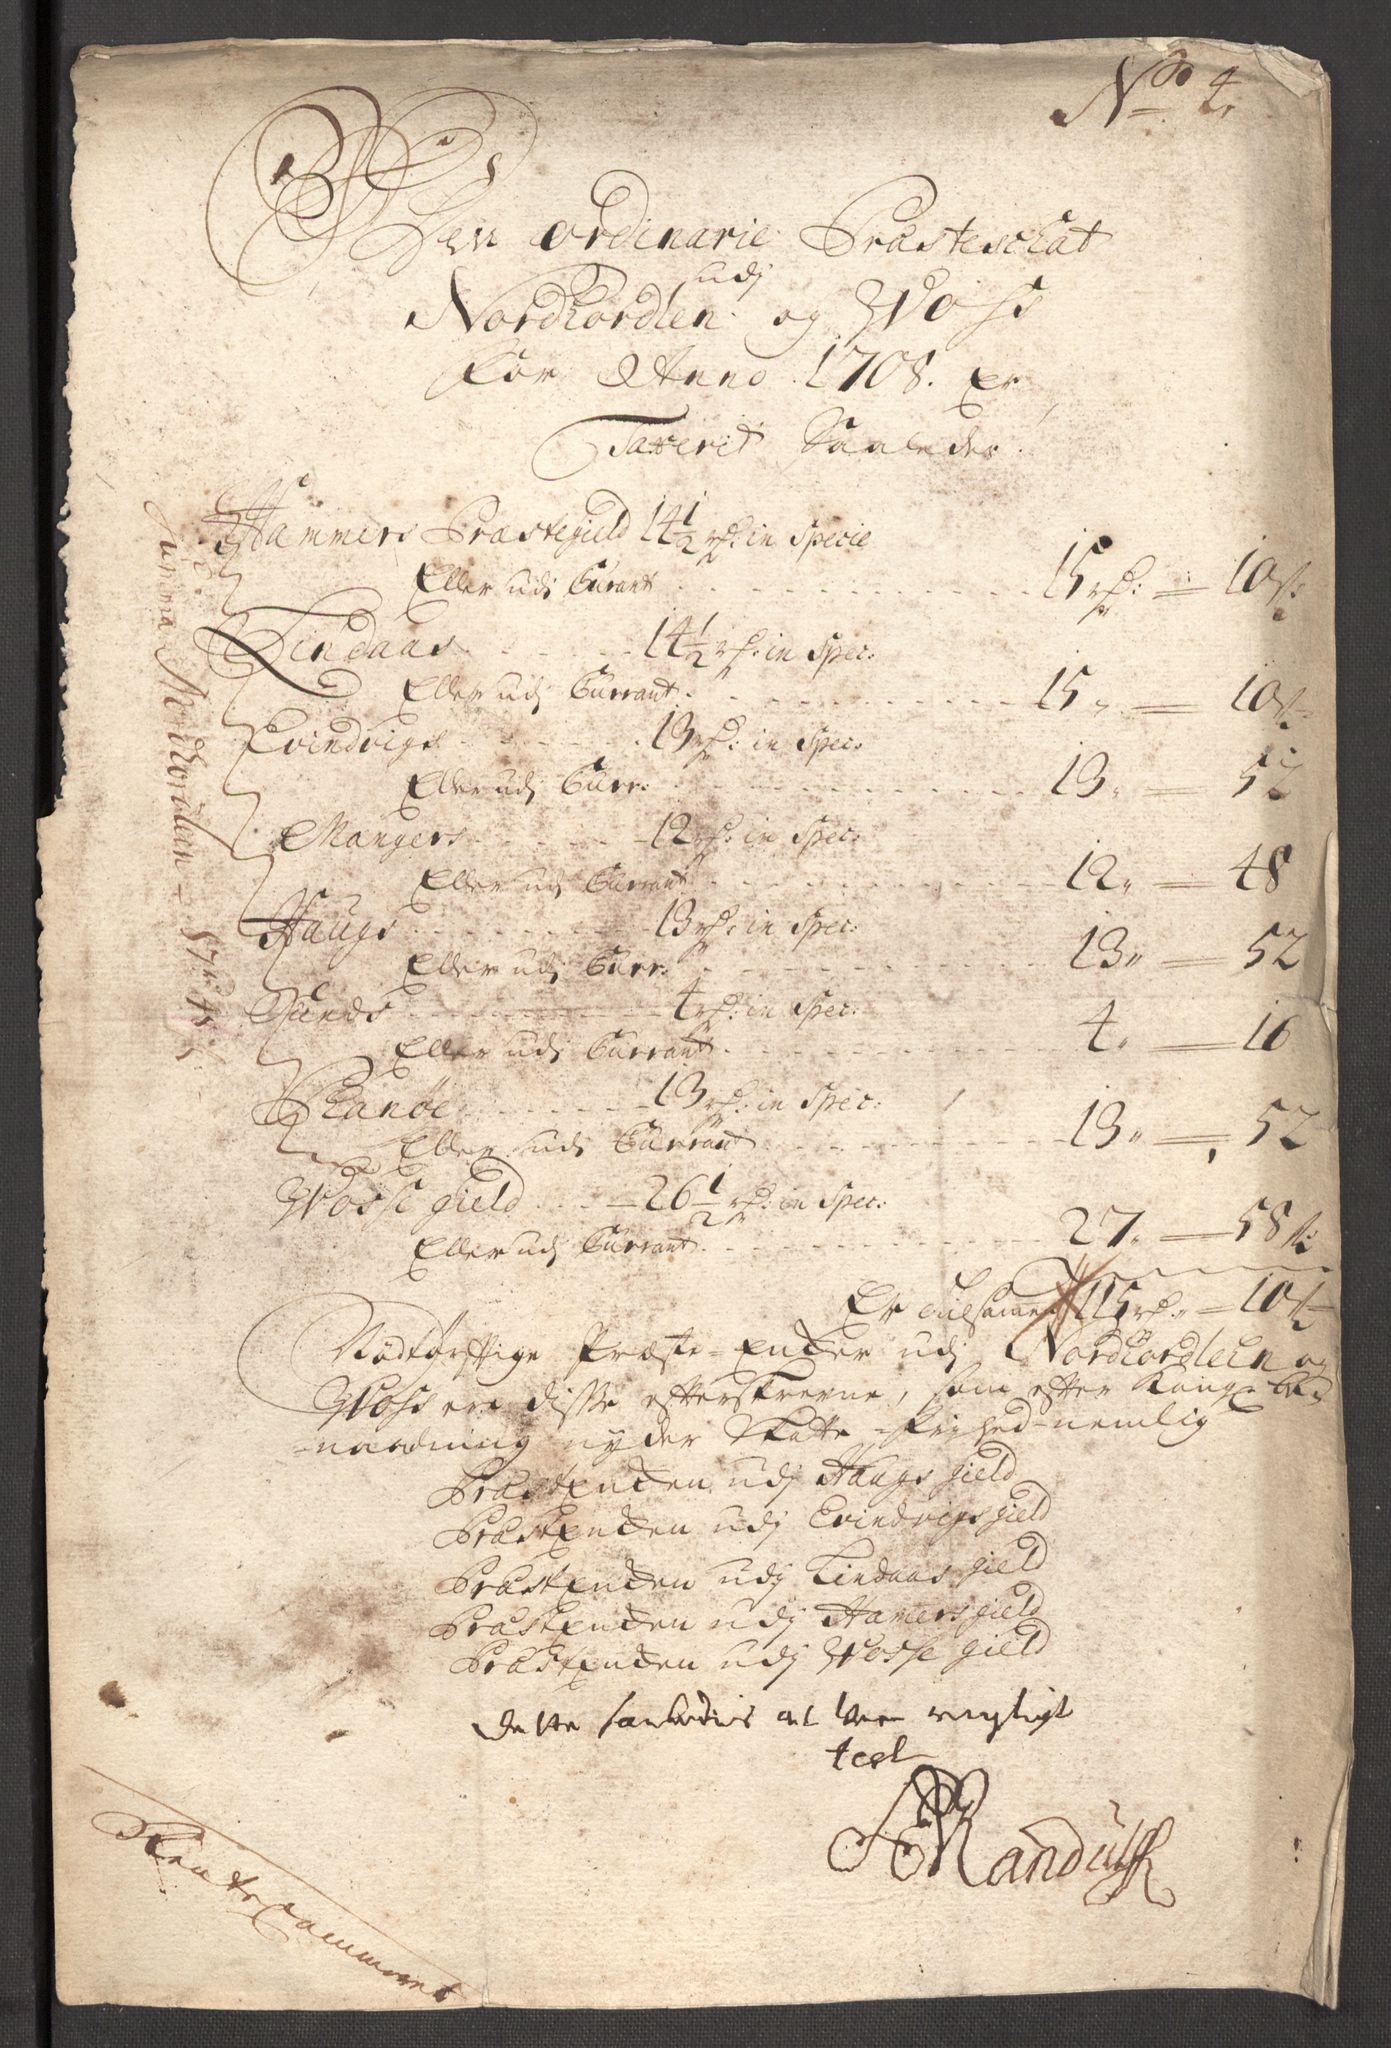 No 4.
Den ordinarie Præsteschat
udj
Nordhordlen og Woss
for Anno 1708. Er
Taxerit Saaledes
Hammers Præstegield 14 1/2 rd: in Specie
Eller udj Curant 15 rd: = 10 s:
Lindaas 14 1/2 rd: in Spec:
Eller udj Currant 15 „ = 10 s
Evindvigs 13 rd: in Spec:
Eller udj Curr: 13 „ = 52
Mangers 12 rd: in Spec:
Eller udj Currant 12 „ = 48
Haugs 13 rd: in Spec:
Eller udj Curr: 13 „ = 52
Sunds 4 rd: in Spec:
Eller udj Currant 4 „ = 16
Skanøe 13 rd: in Spec:
Eller udj Currant 13 „ = 52
Wosse gield 26 1/2 rd: in Spec:
Eller udj Currant 27 „ = 58 s:
Er tilsamen 115 rd. = 10 s
Nødtørfftige Præste-Encker udj Nordhordlen og
Woss ere disse efterskrevne, som efter Kongl: be-
-naadning nyder Skatte-frihed-nemlig
Præstencken udj Haugs gield
Præstencken udj Evindvigs gield
Præstencken udj Lindaas gield
Præstencken udj Hamers gield
Præstencken udj Wosse gield
Dette saaledis at være rigtigt
test
Randulff
Rente Cammeret
Summa Nordhordlen - 87 rd 48 s